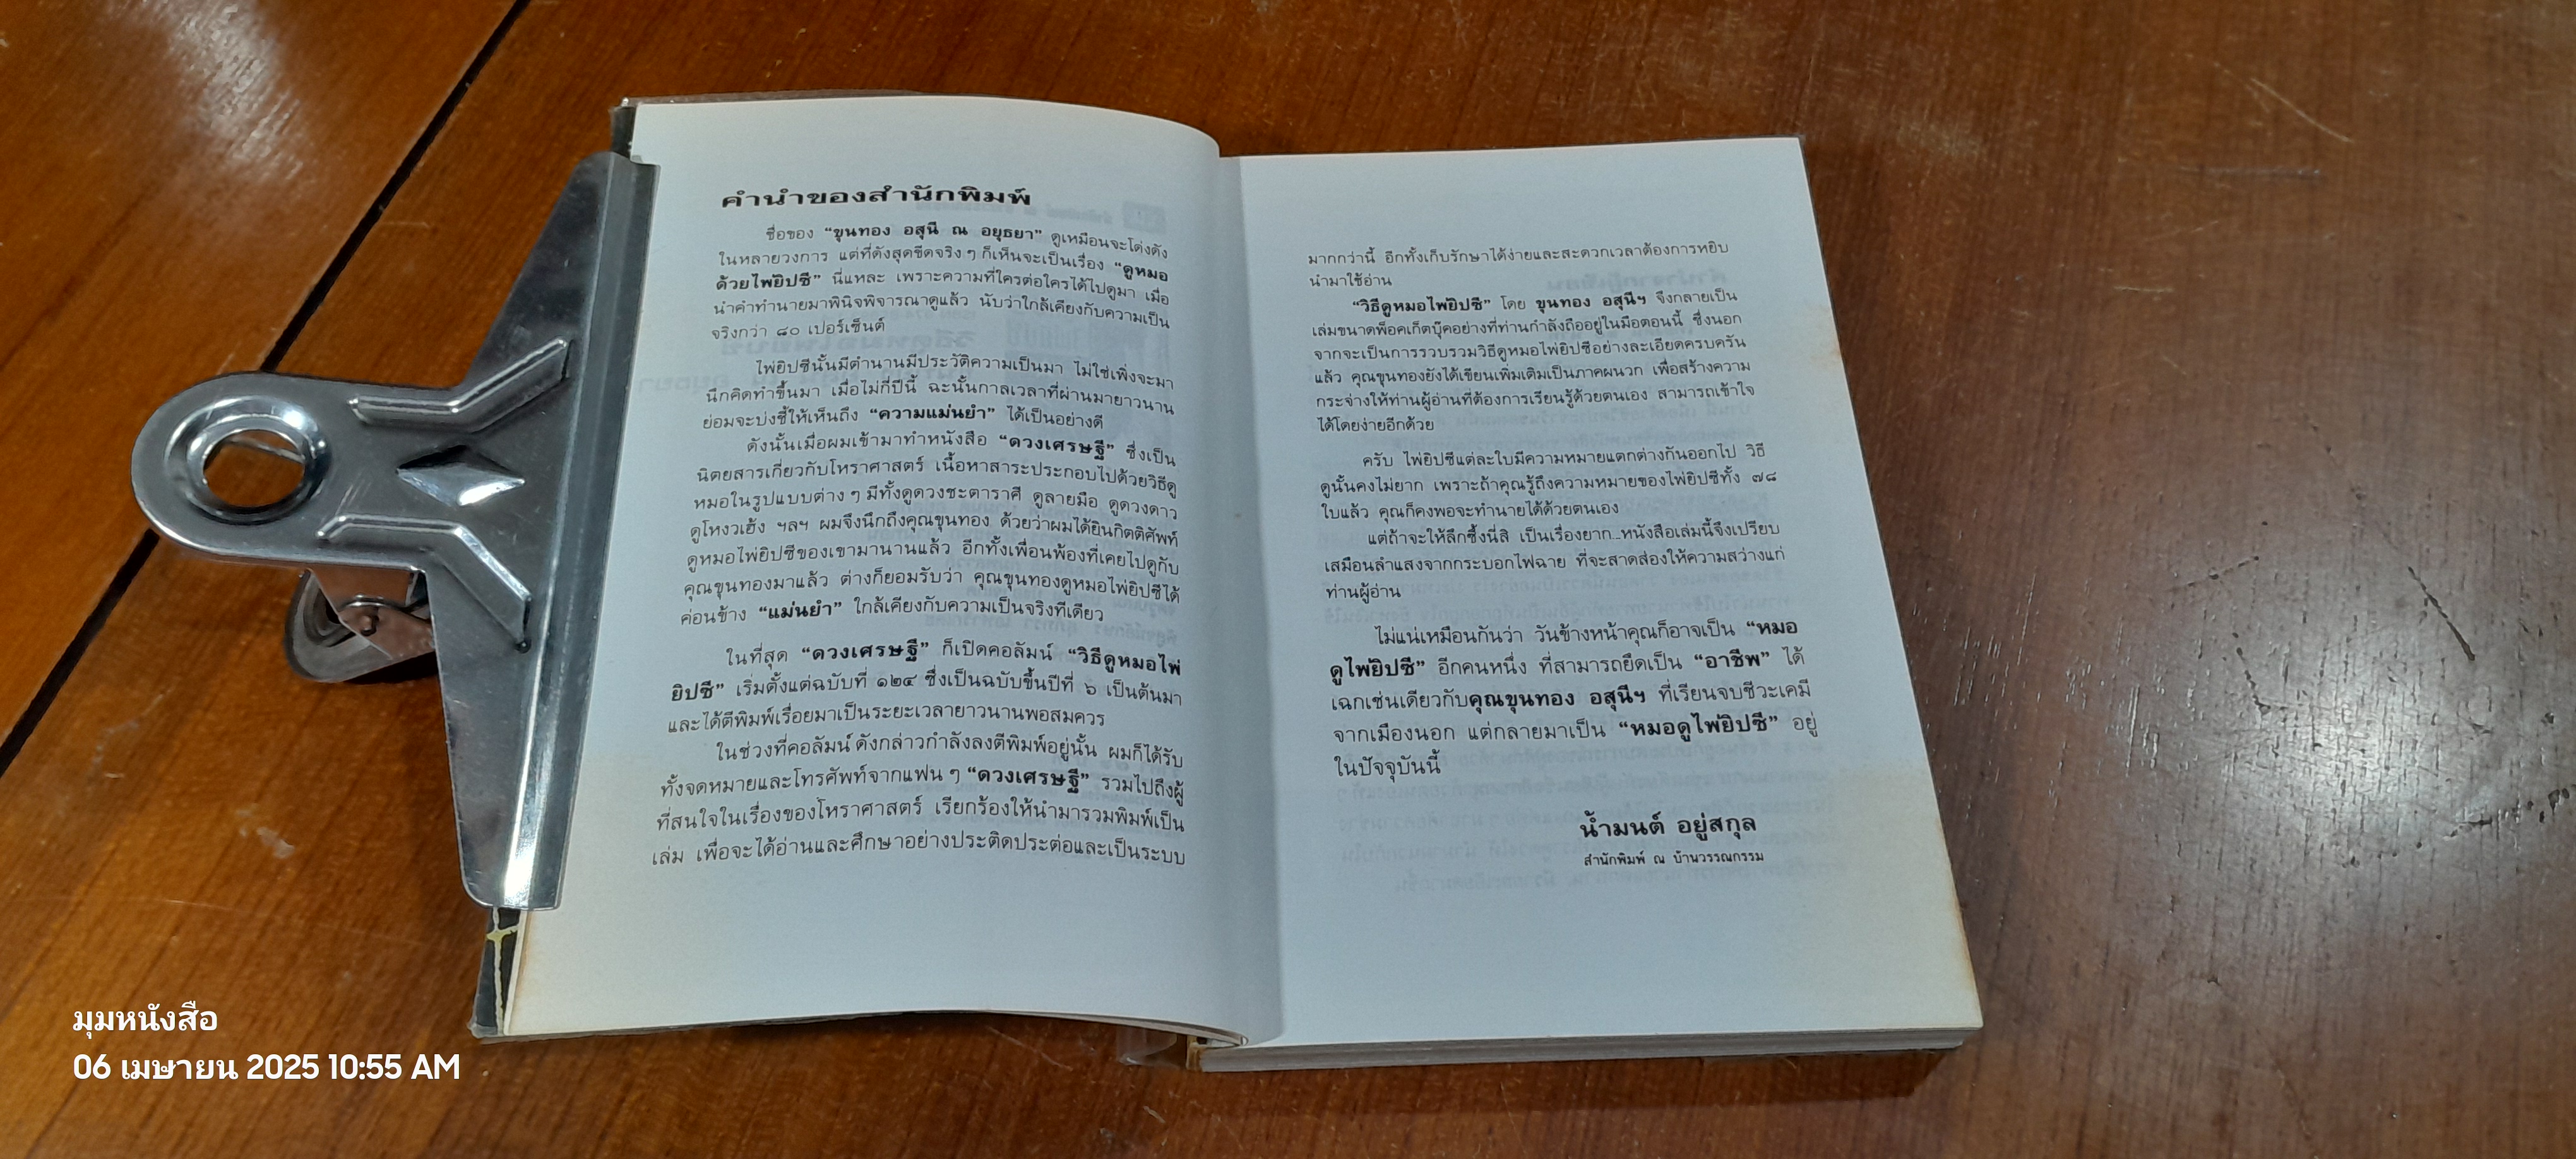 คำนำของสำนักพิมพ์
ชื่อของ “ขุนทอง อสุนี ณ อยุธยา” ดูเหมือนจะโด่งดัง
ในหลายวงการ แต่ที่ดังสุดขีดจริง ๆ ก็เห็นจะเป็นเรื่อง “ดูหมอ
ด้วยไพ่ยิปซี” นี่แหละ เพราะความที่ใครต่อใครได้ไปดูมา เมื่อ
นำคำทำนายมาพินิจพิจารณาดูแล้ว นับว่าใกล้เคียงกับความเป็น
จริงกว่า ๘๐ เปอร์เซ็นต์
ไพ่ยิปซีนั้นมีตำนานมีประวัติความเป็นมา ไม่ใช่เพิ่งจะมา
นึกคิดทำขึ้นมา เมื่อไม่กี่ปีนี้ ฉะนั้นกาลเวลาที่ผ่านมายาวนาน
ย่อมจะบ่งชี้ให้เห็นถึง “ความแม่นยำ” ได้เป็นอย่างดี
ดังนั้นเมื่อผมเข้ามาทำหนังสือ “ดวงเศรษฐี” ซึ่งเป็น
นิตยสารเกี่ยวกับโหราศาสตร์ เนื้อหาสาระประกอบไปด้วยวิธีดู
หมอในรูปแบบต่าง ๆ มีทั้งดูดวงชะตาราศี ดูลายมือ ดูดวงดาว
ดูโหงวเฮ้ง ฯลฯ ผมจึงนึกถึงคุณขุนทอง ด้วยว่าผมได้ยินกิตติศัพท์
ดูหมอไพ่ยิปซีของเขามานานแล้ว อีกทั้งเพื่อนพ้องที่เคยไปดูกับ
คุณขุนทองมาแล้ว ต่างก็ยอมรับว่า คุณขุนทองดูหมอไพ่ยิปซีได้
ค่อนข้าง “แม่นยำ” ใกล้เคียงกับความเป็นจริงทีเดียว
ในที่สุด “ดวงเศรษฐี” ก็เปิดคอลัมน์ “วิธีดูหมอไพ่
ยิปซี” เริ่มตั้งแต่ฉบับที่ ๑๒๔ ซึ่งเป็นฉบับขึ้นปีที่ ๖ เป็นต้นมา
และได้ตีพิมพ์เรื่อยมาเป็นระยะเวลายาวนานพอสมควร
ในช่วงที่คอลัมน์ดังกล่าวกำลังลงตีพิมพ์อยู่นั้น ผมก็ได้รับ
ทั้งจดหมายและโทรศัพท์จากแฟน ๆ “ดวงเศรษฐี” รวมไปถึงผู้
ที่สนใจในเรื่องของโหราศาสตร์ เรียกร้องให้นำมารวมพิมพ์เป็น
เล่ม เพื่อจะได้อ่านและศึกษาอย่างประติดประต่อและเป็นระบบ
มากกว่านี้ อีกทั้งเก็บรักษาได้ง่ายและสะดวกเวลาต้องการหยิบ
นำมาใช้อ่าน
“วิธีดูหมอไพ่ยิปซี” โดย ขุนทอง อสุนีฯ จึงกลายเป็น
เล่มขนาดพ็อคเก็ตบุ๊คอย่างที่ท่านกำลังถืออยู่ในมือตอนนี้ ซึ่งนอก
จากจะเป็นการรวบรวมวิธีดูหมอไพ่ยิปซีอย่างละเอียดครบครัน
แล้ว คุณขุนทองยังได้เขียนเพิ่มเติมเป็นภาคผนวก เพื่อสร้างความ
กระจ่างให้ท่านผู้อ่านที่ต้องการเรียนรู้ด้วยตนเอง สามารถเข้าใจ
ได้โดยง่ายอีกด้วย
ครับ ไพ่ยิปซีแต่ละใบมีความหมายแตกต่างกันออกไป วิธี
ดูนั้นคงไม่ยาก เพราะถ้าคุณรู้ถึงความหมายของไพ่ยิปซีทั้ง ๗๘
ใบแล้ว คุณก็คงพอจะทำนายได้ด้วยตนเอง
แต่ถ้าจะให้ลึกซึ้งนี่สิ เป็นเรื่องยาก...หนังสือเล่มนี้จึงเปรียบ
เสมือนลำแสงจากกระบอกไฟฉาย ที่จะสาดส่องให้ความสว่างแก่
ท่านผู้อ่าน
ไม่แน่เหมือนกันว่า วันข้างหน้าคุณก็อาจเป็น “หมอ
ดูไพ่ยิปซี” อีกคนหนึ่ง ที่สามารถยึดเป็น “อาชีพ” ได้
เฉกเช่นเดียวกับคุณขุนทอง อสุนีฯ ที่เรียนจบชีวะเคมี
จากเมืองนอก แต่กลายมาเป็น “หมอดูไพ่ยิปซี” อยู่
ในปัจจุบันนี้
น้ำมนต์ อยู่สกุล
สำนักพิมพ์ ณ บ้านวรรณกรรม
มุมหนังสือ
06 เมษายน 2025 10:55 AM